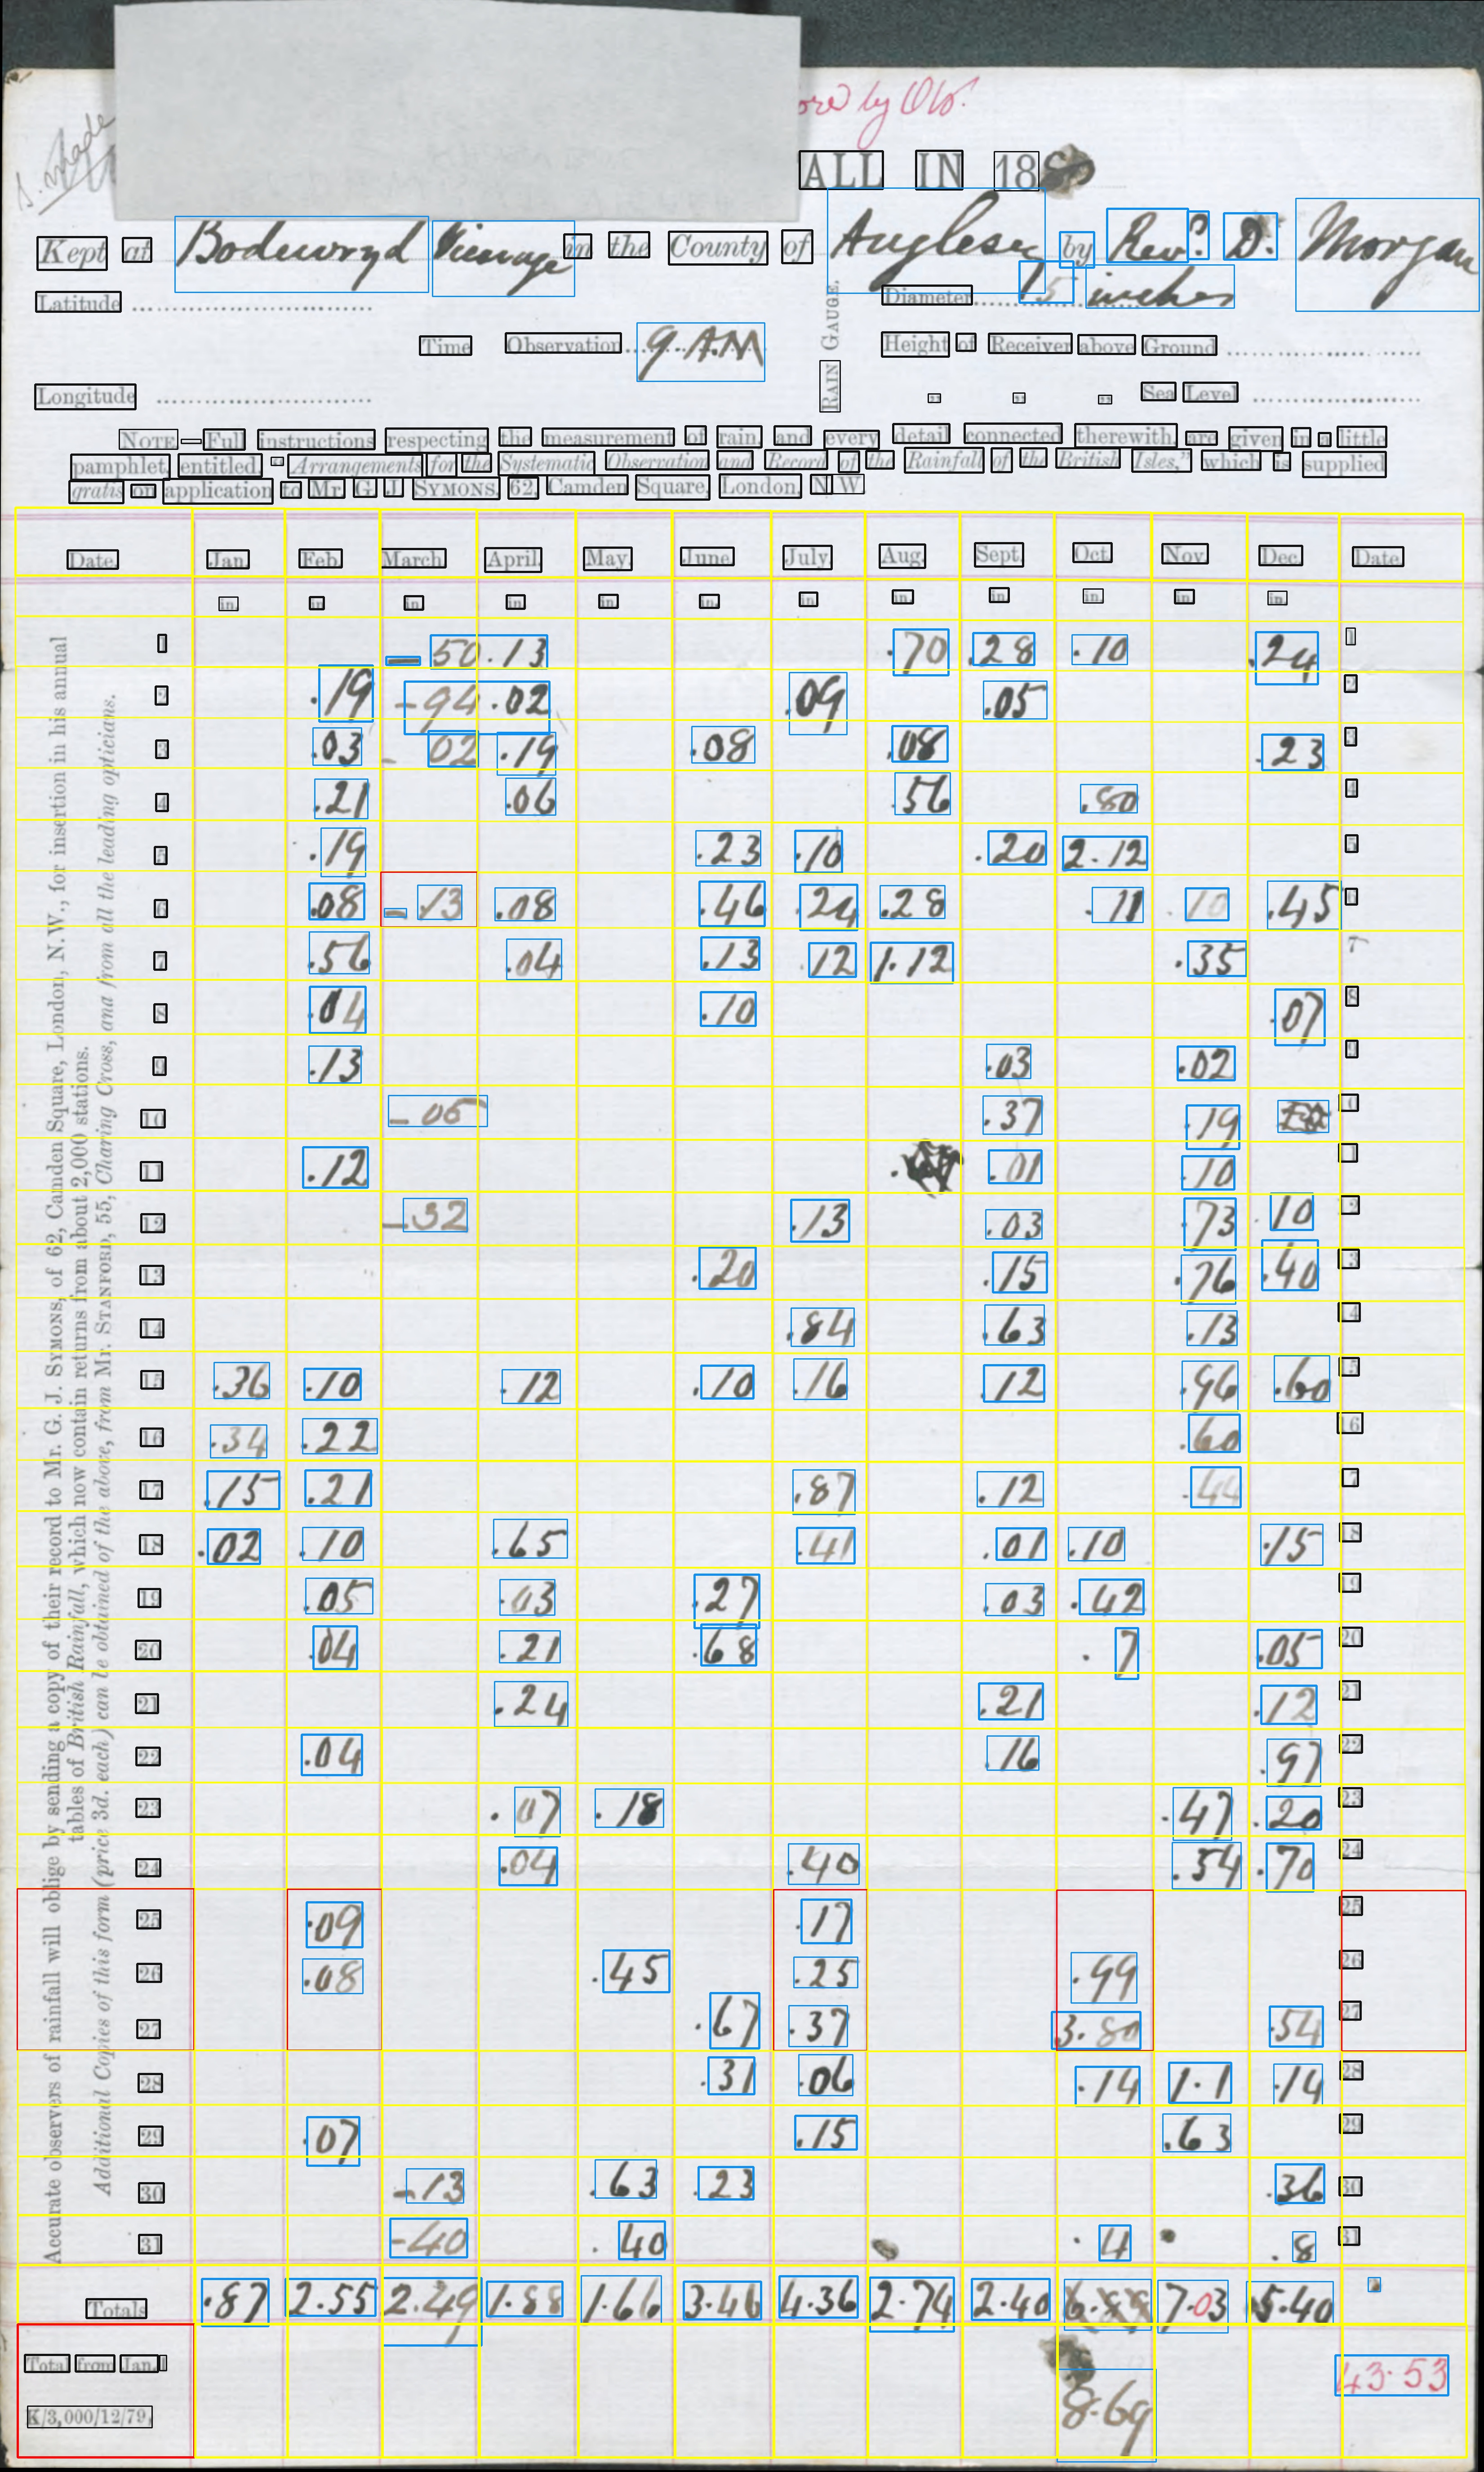 ored by Ob.
S. Made
ALL IN 188
Kept at Bodewryd Vicarage in the County of Anglesey by Revd. D. Morgan
Latitude
Diameter 5 inches
Time Observation 9 AM
RAIN GAUGE.
Height of Receiver above Ground
Longitude
" " " Sea Level
NOTE.—Full instructions respecting the measurement of rain, and every detail connected therewith, are given in a little
pamphlet, entitled, "Arrangements for the Systematic Observation and Record of the Rainfall of the British Isles," which is supplied
gratis on application to Mr. G. J. SYMONS, 62, Camden Square, London, N.W.
Accurate observers of rainfall will oblige by sending a copy of their record to Mr. G. J. SYMONS, of 62, Camden Square, London, N.W., for insertion in his annual
tables of British Rainfall, which now contain returns from about 2,000 stations.
Additional Copies of this form (price 3d. each) can be obtained of the above, from Mr. STANFORD, 55, Charing Cross, and from all the leading opticians.
Date. Jan. Feb. March. April. May. June. July. Aug. Sept. Oct. Nov. Dec. Date.
in. in. in. in. in. in. in. in. in. in. in. in.
1 — 50 .13 .70 .28 .10 .24 1
2 .19 -94 .02 .09 .05 2
3 .03 - 02 .19 .08 .08 .23 3
4 .21 .06 .56 .80 4
5 .19 .23 .10 .20 2.12 5
6 .08 - .13 .08 .46 .24 .28 .11 .10 .45 6
7 .56 .04 .13 .12 1.12 .35 7
8 .04 .10 .07 8
9 .13 .03 .02 9
10 - 05 .37 .19 10
11 .12 .01 .10 11
12 -32 .13 .03 .73 .10 12
13 .20 .15 .76 .40 13
14 .84 .63 .13 14
15 .36 .10 .12 .10 .16 .12 .96 .60 15
16 .34 .22 .60 16
17 .15 .21 .87 .12 .44 17
18 .02 .10 .65 .41 .01 .10 .15 18
19 .05 .03 .27 .03 .42 19
20 .04 .21 .68 . 7 .05 20
21 .24 .21 .12 21
22 .04 .16 .97 22
23 .07 .18 .47 .20 23
24 .04 .40 .54 .70 24
25 .09 .17 25
26 .08 .45 .25 .99 26
27 .67 .37 3.80 .54 27
28 .31 .06 .14 1.1 .14 28
29 .07 .15 .63 29
30 -13 .63 .23 .36 30
31 -40 .40 . 4 . 8 31
Totals .87 2.55 2.49 1.88 1.66 3.46 4.36 2.74 2.40 6.89 7.03 5.40
Total from Jan. 1 8.69 43.53
K/3,000/12/79.